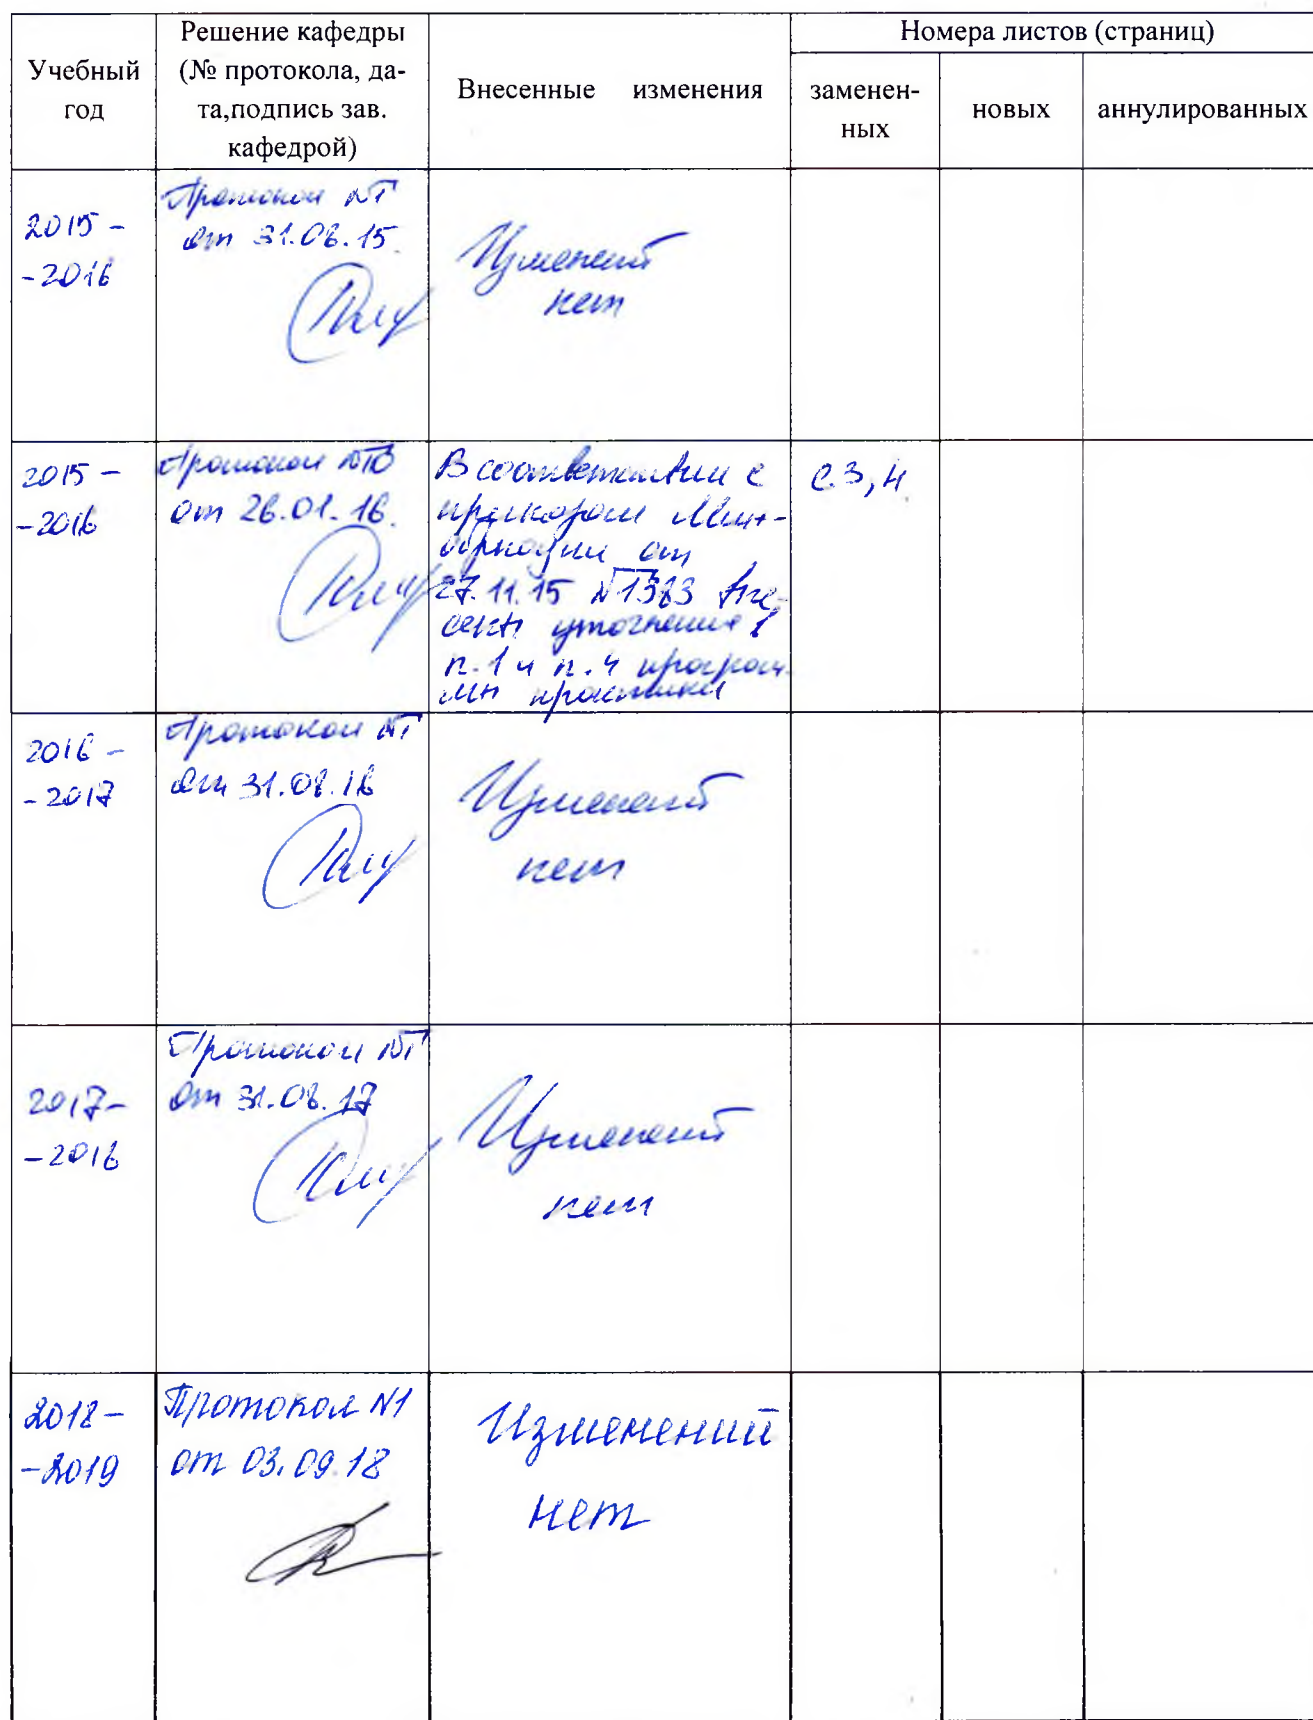 Учебный
год
Решение кафедры
(№ протокола, да-
та,подпись зав.
кафедрой)
Внесенные изменения
Номера листов (страниц)
заменен-
ных
новых
аннулированных
2015 -
- 2016
Протокол №1
от 31.08.15.
Изменений
нет
2015 -
- 2016
Протокол №10
от 26.01.16.
В соответствии с
приказом Мин-
обрнауки от
27.11.15 №1383 вне-
сены уточнения в
п.1 и п.4 програм-
мы практики
с.3,4
2016 -
- 2017
Протокол №1
от 31.08.16
Изменений
нет
2017 -
- 2018
Протокол №1
от 31.08.17
Изменений
нет
2018 -
- 2019
Протокол №1
от 03.09.18
Изменений
нет